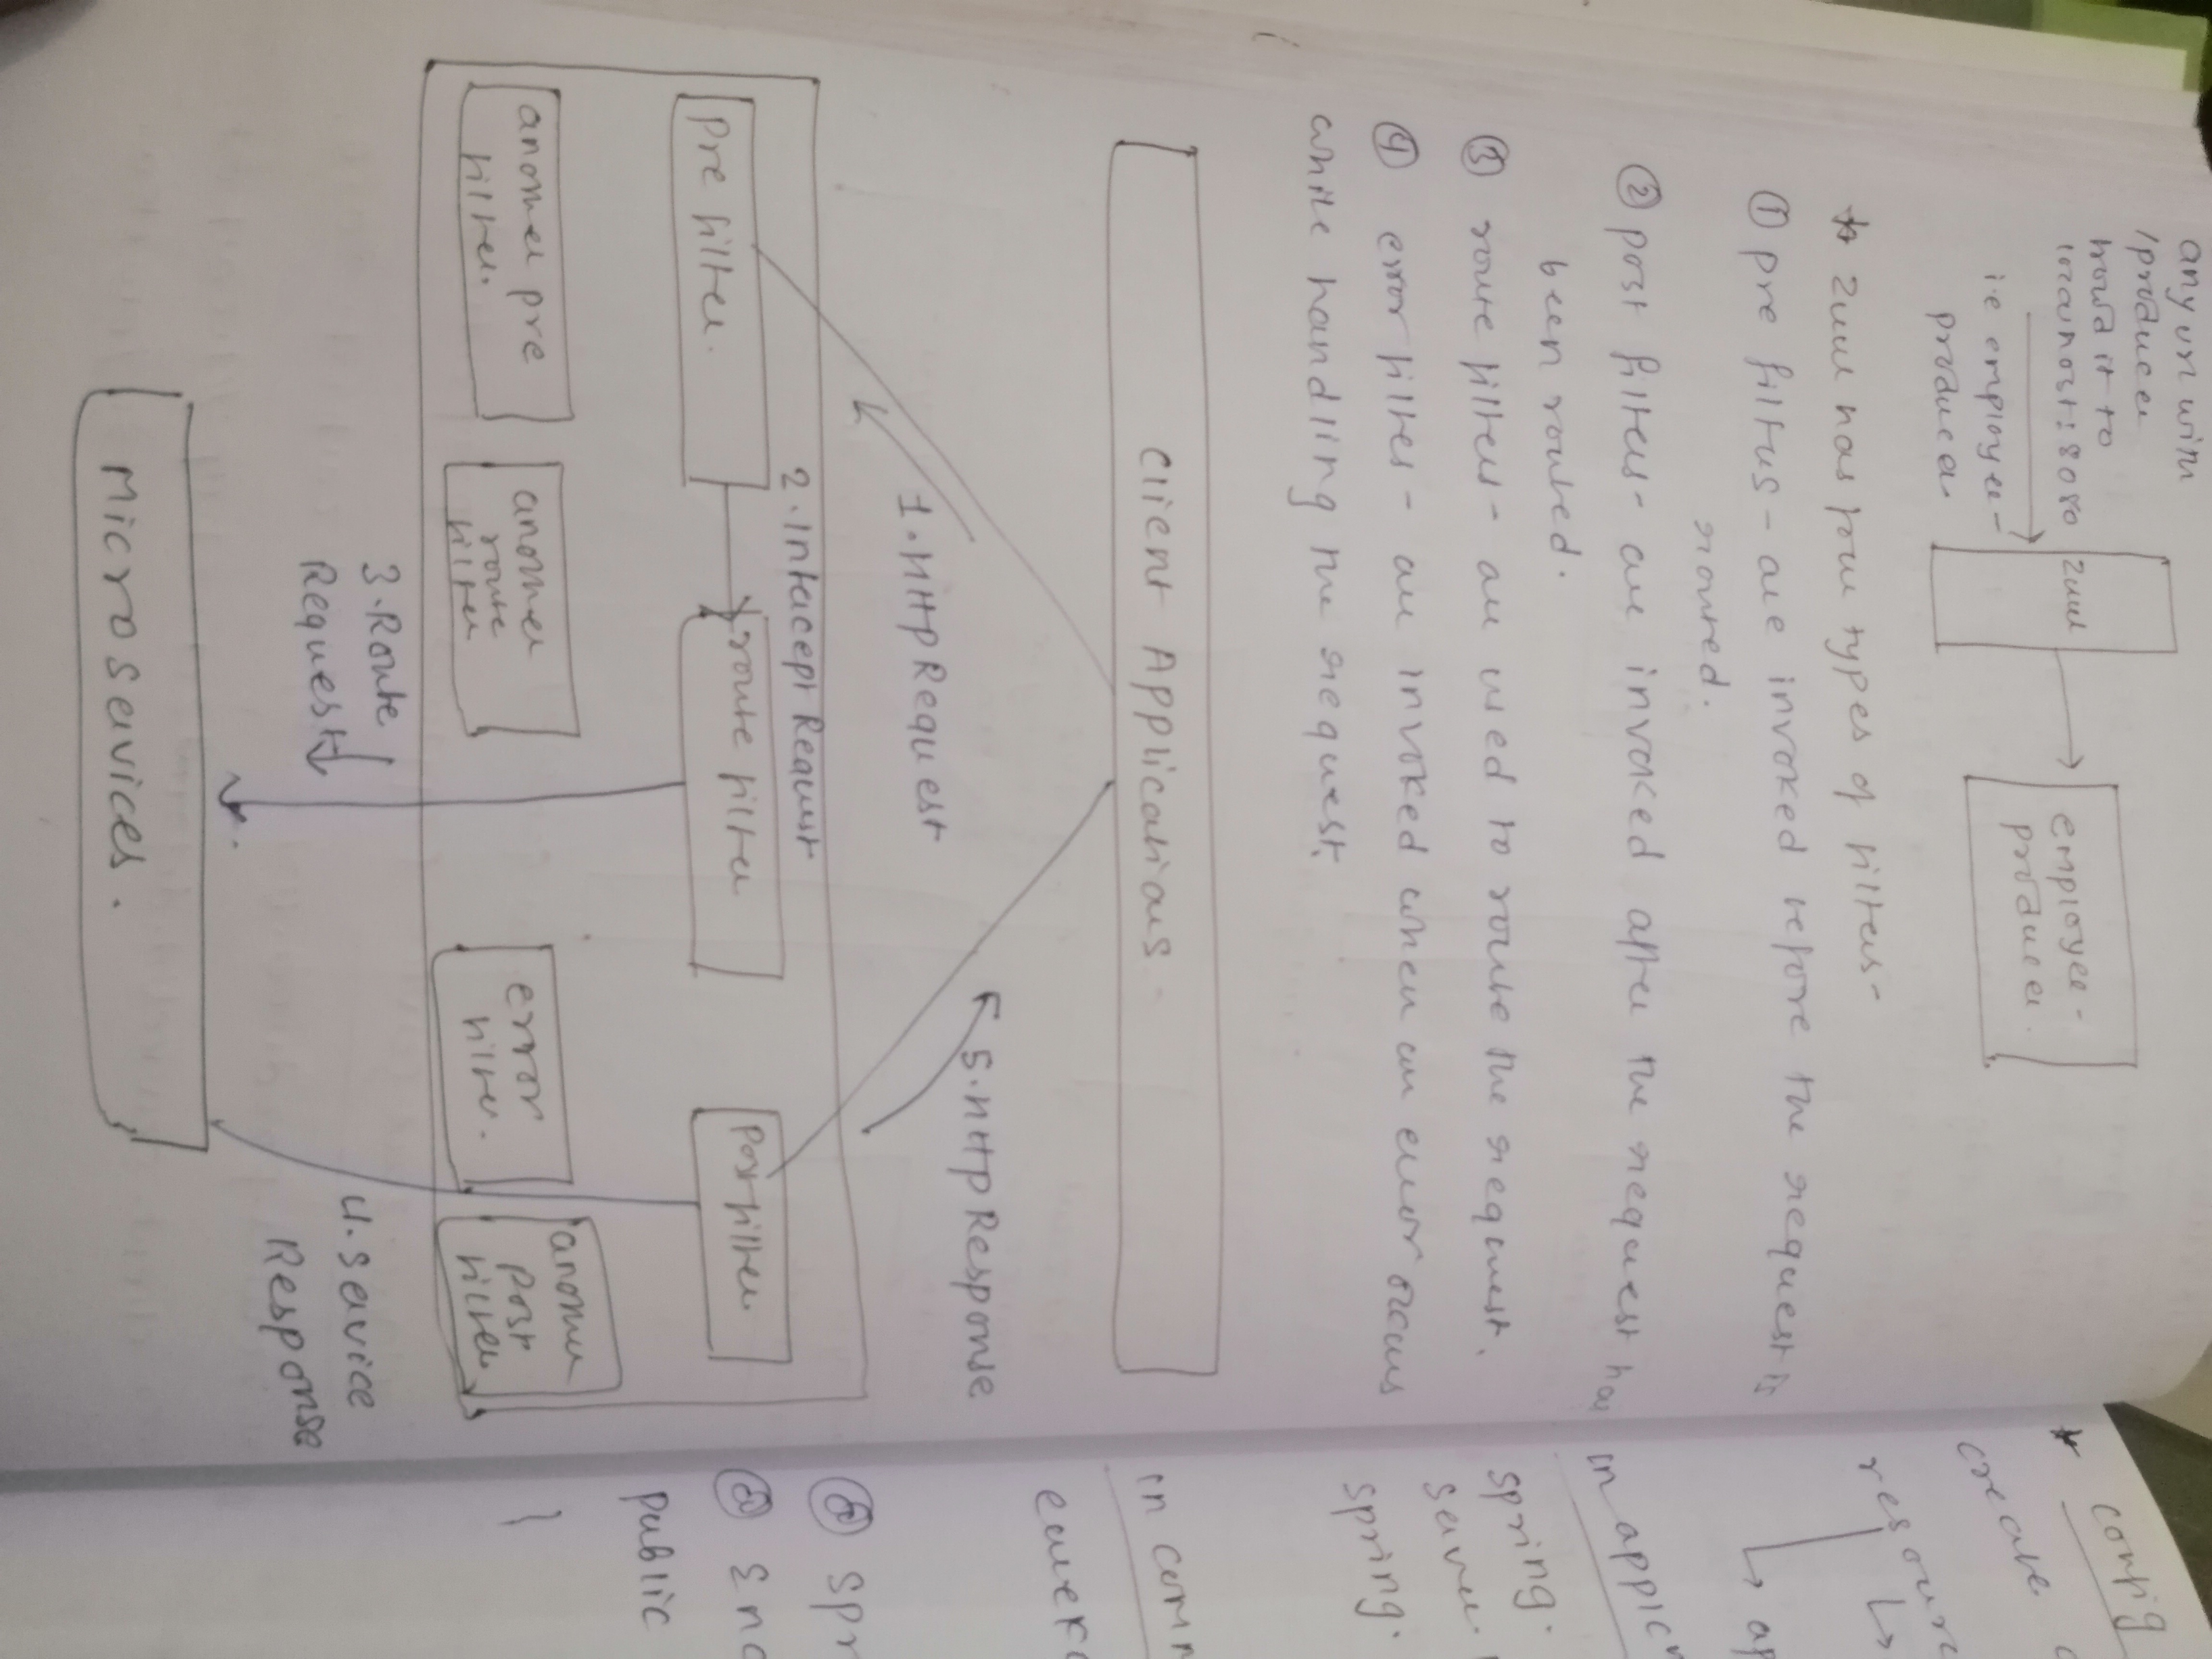 any url with
/producer
rout it to
localhost:8080
i.e employee-
producer
zuul
employee-
producer.
* zuul has four types of filters-
① pre filters - are invoked before the request is
routed.
② post filters - are invoked after the request has
been routed.
③ route filters - are used to route the request.
④ error filters - are invoked when an error occurs
while handling the request.
Client Applications
1. HTTP Request
5. HTTP Response
2. Intercept Request
pre filter.
route filter
Post filter
another pre
filter.
another
route
filter
error
filter.
another
post
filter
3. Route
Request
4. Service
Response
Microservices.
* config
create
resourc
in applic
spring.
server
spring.
in comm
eureka
spr
Ena
public
}